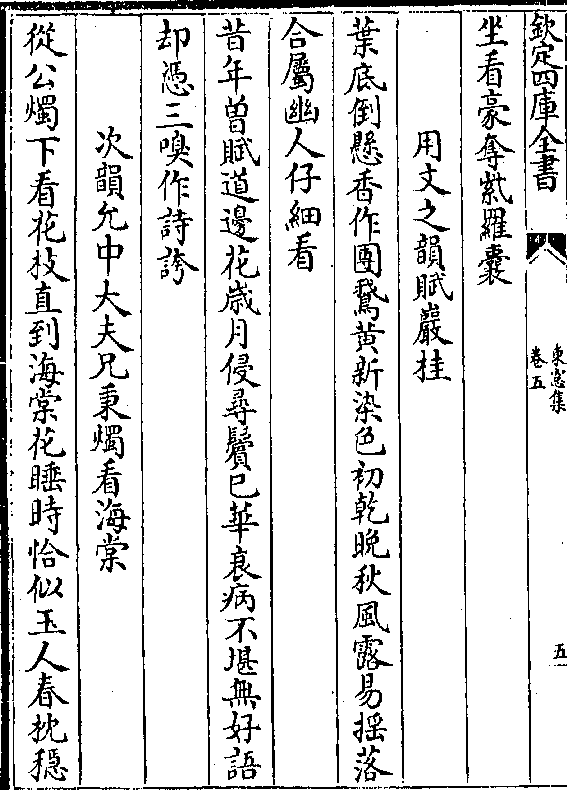 欽定四庫全書
東窻集
卷五
五
坐看豪奪紫羅囊
用文之韻賦巖桂
葉底倒懸香作團鵞黄新染色初乾晚秋風露易揺落
合屬幽人仔細看
昔年曽賦道邊花歳月侵尋鬢已華衰病不堪無好語
却憑三嗅作詩誇
次韻允中大夫兄秉燭看海棠
從公燭下看花枝直到海棠花睡時恰似玉人春枕穏